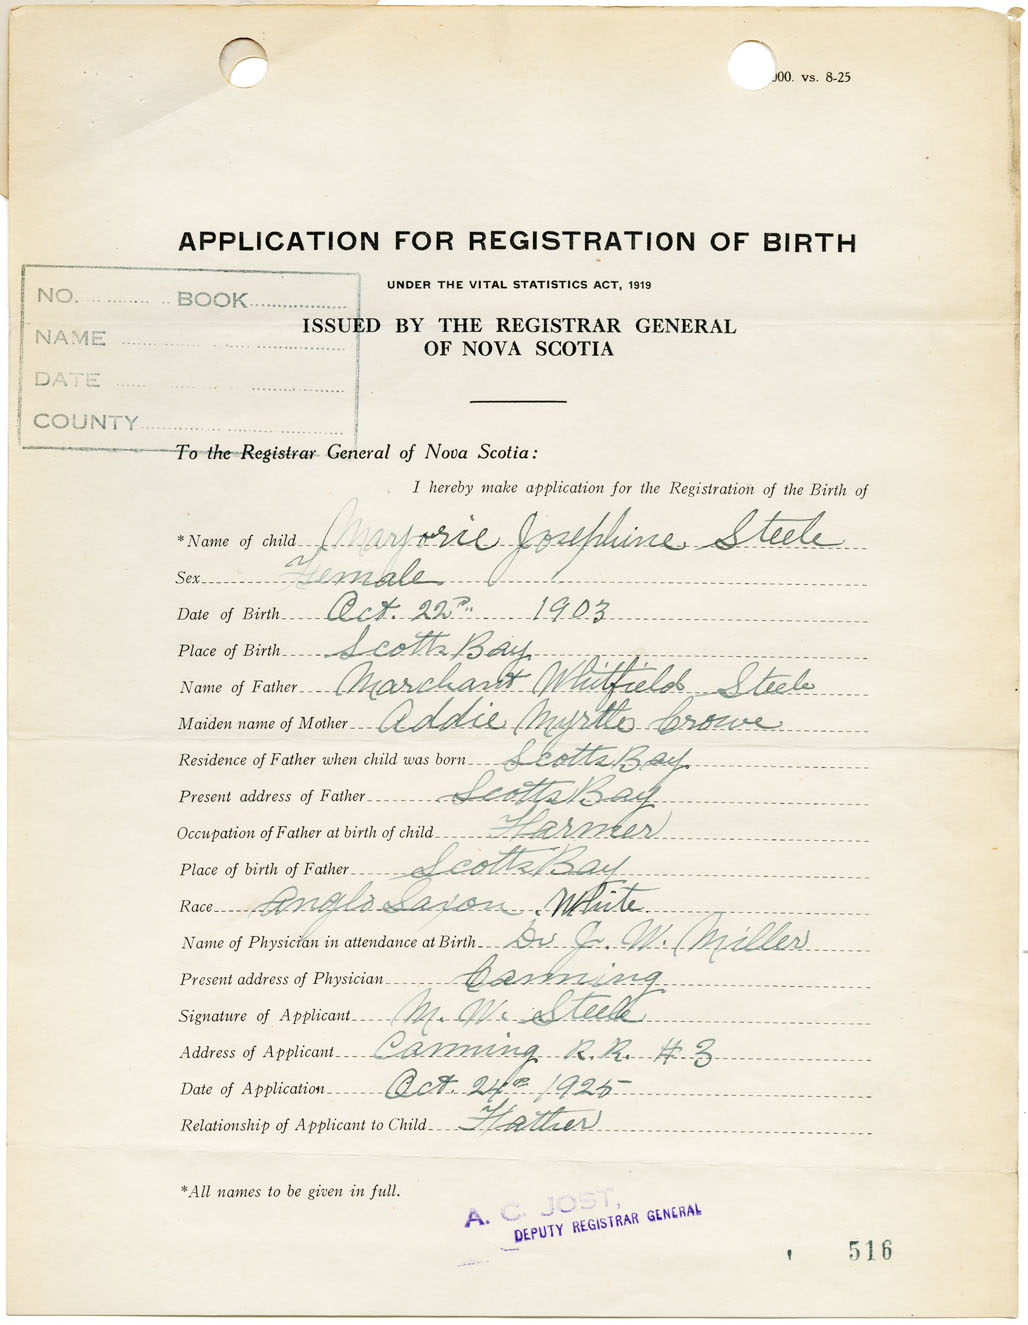 000. vs. 8-25
APPLICATION FOR REGISTRATION OF BIRTH
UNDER THE VITAL STATISTICS ACT, 1919
ISSUED BY THE REGISTRAR GENERAL
OF NOVA SCOTIA
NO. BOOK
NAME
DATE
COUNTY
To the Registrar General of Nova Scotia:
I hereby make application for the Registration of the Birth of
*Name of child Marjorie Josephine Steele
Sex Female
Date of Birth Oct. 22nd 1903
Place of Birth Scotts Bay
Name of Father Marchant Whitfield Steele
Maiden name of Mother Addie Myrtle Crowe
Residence of Father when child was born Scotts Bay
Present address of Father Scotts Bay
Occupation of Father at birth of child Farmer
Place of birth of Father Scotts Bay
Race Anglo Saxon White
Name of Physician in attendance at Birth Dr J. W. Miller
Present address of Physician Canning
Signature of Applicant M. W. Steele
Address of Applicant Canning R.R. #3
Date of Application Oct. 24th 1925
Relationship of Applicant to Child Father
*All names to be given in full.
A. C. JOST,
DEPUTY REGISTRAR GENERAL
516